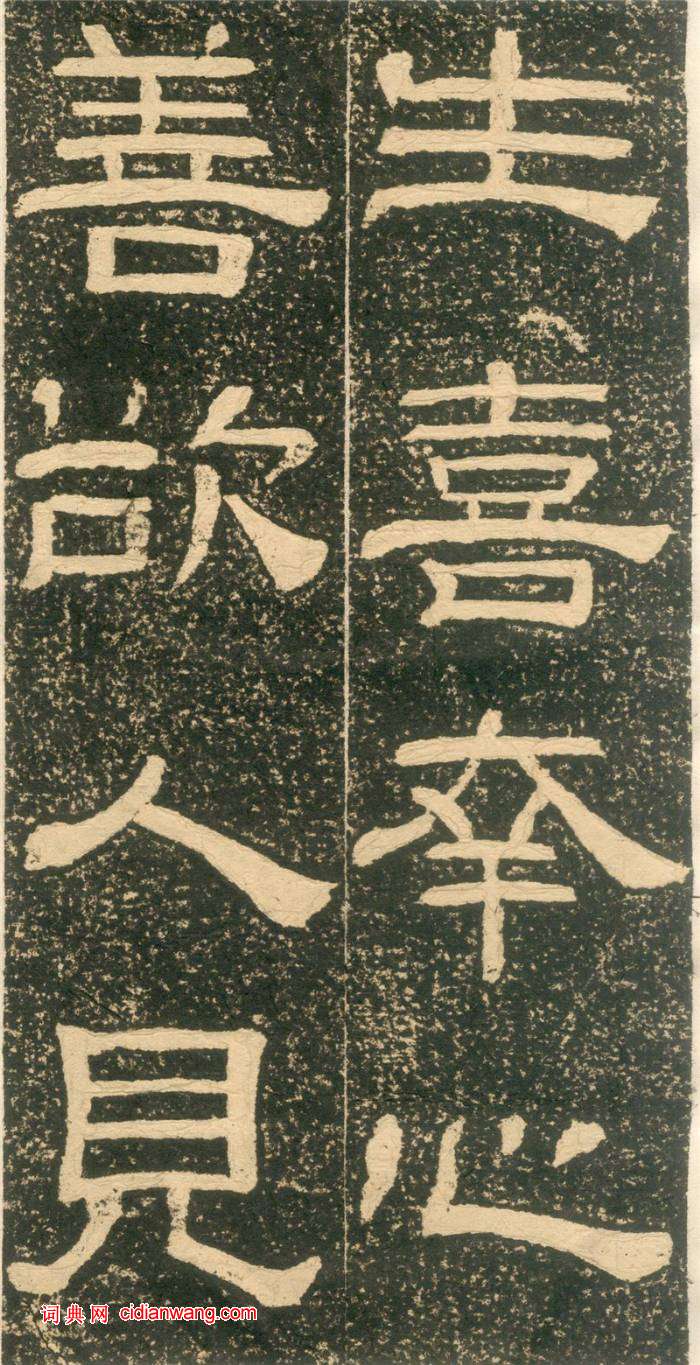 生喜幸心
善欲人見
词典网 cidianwang.com